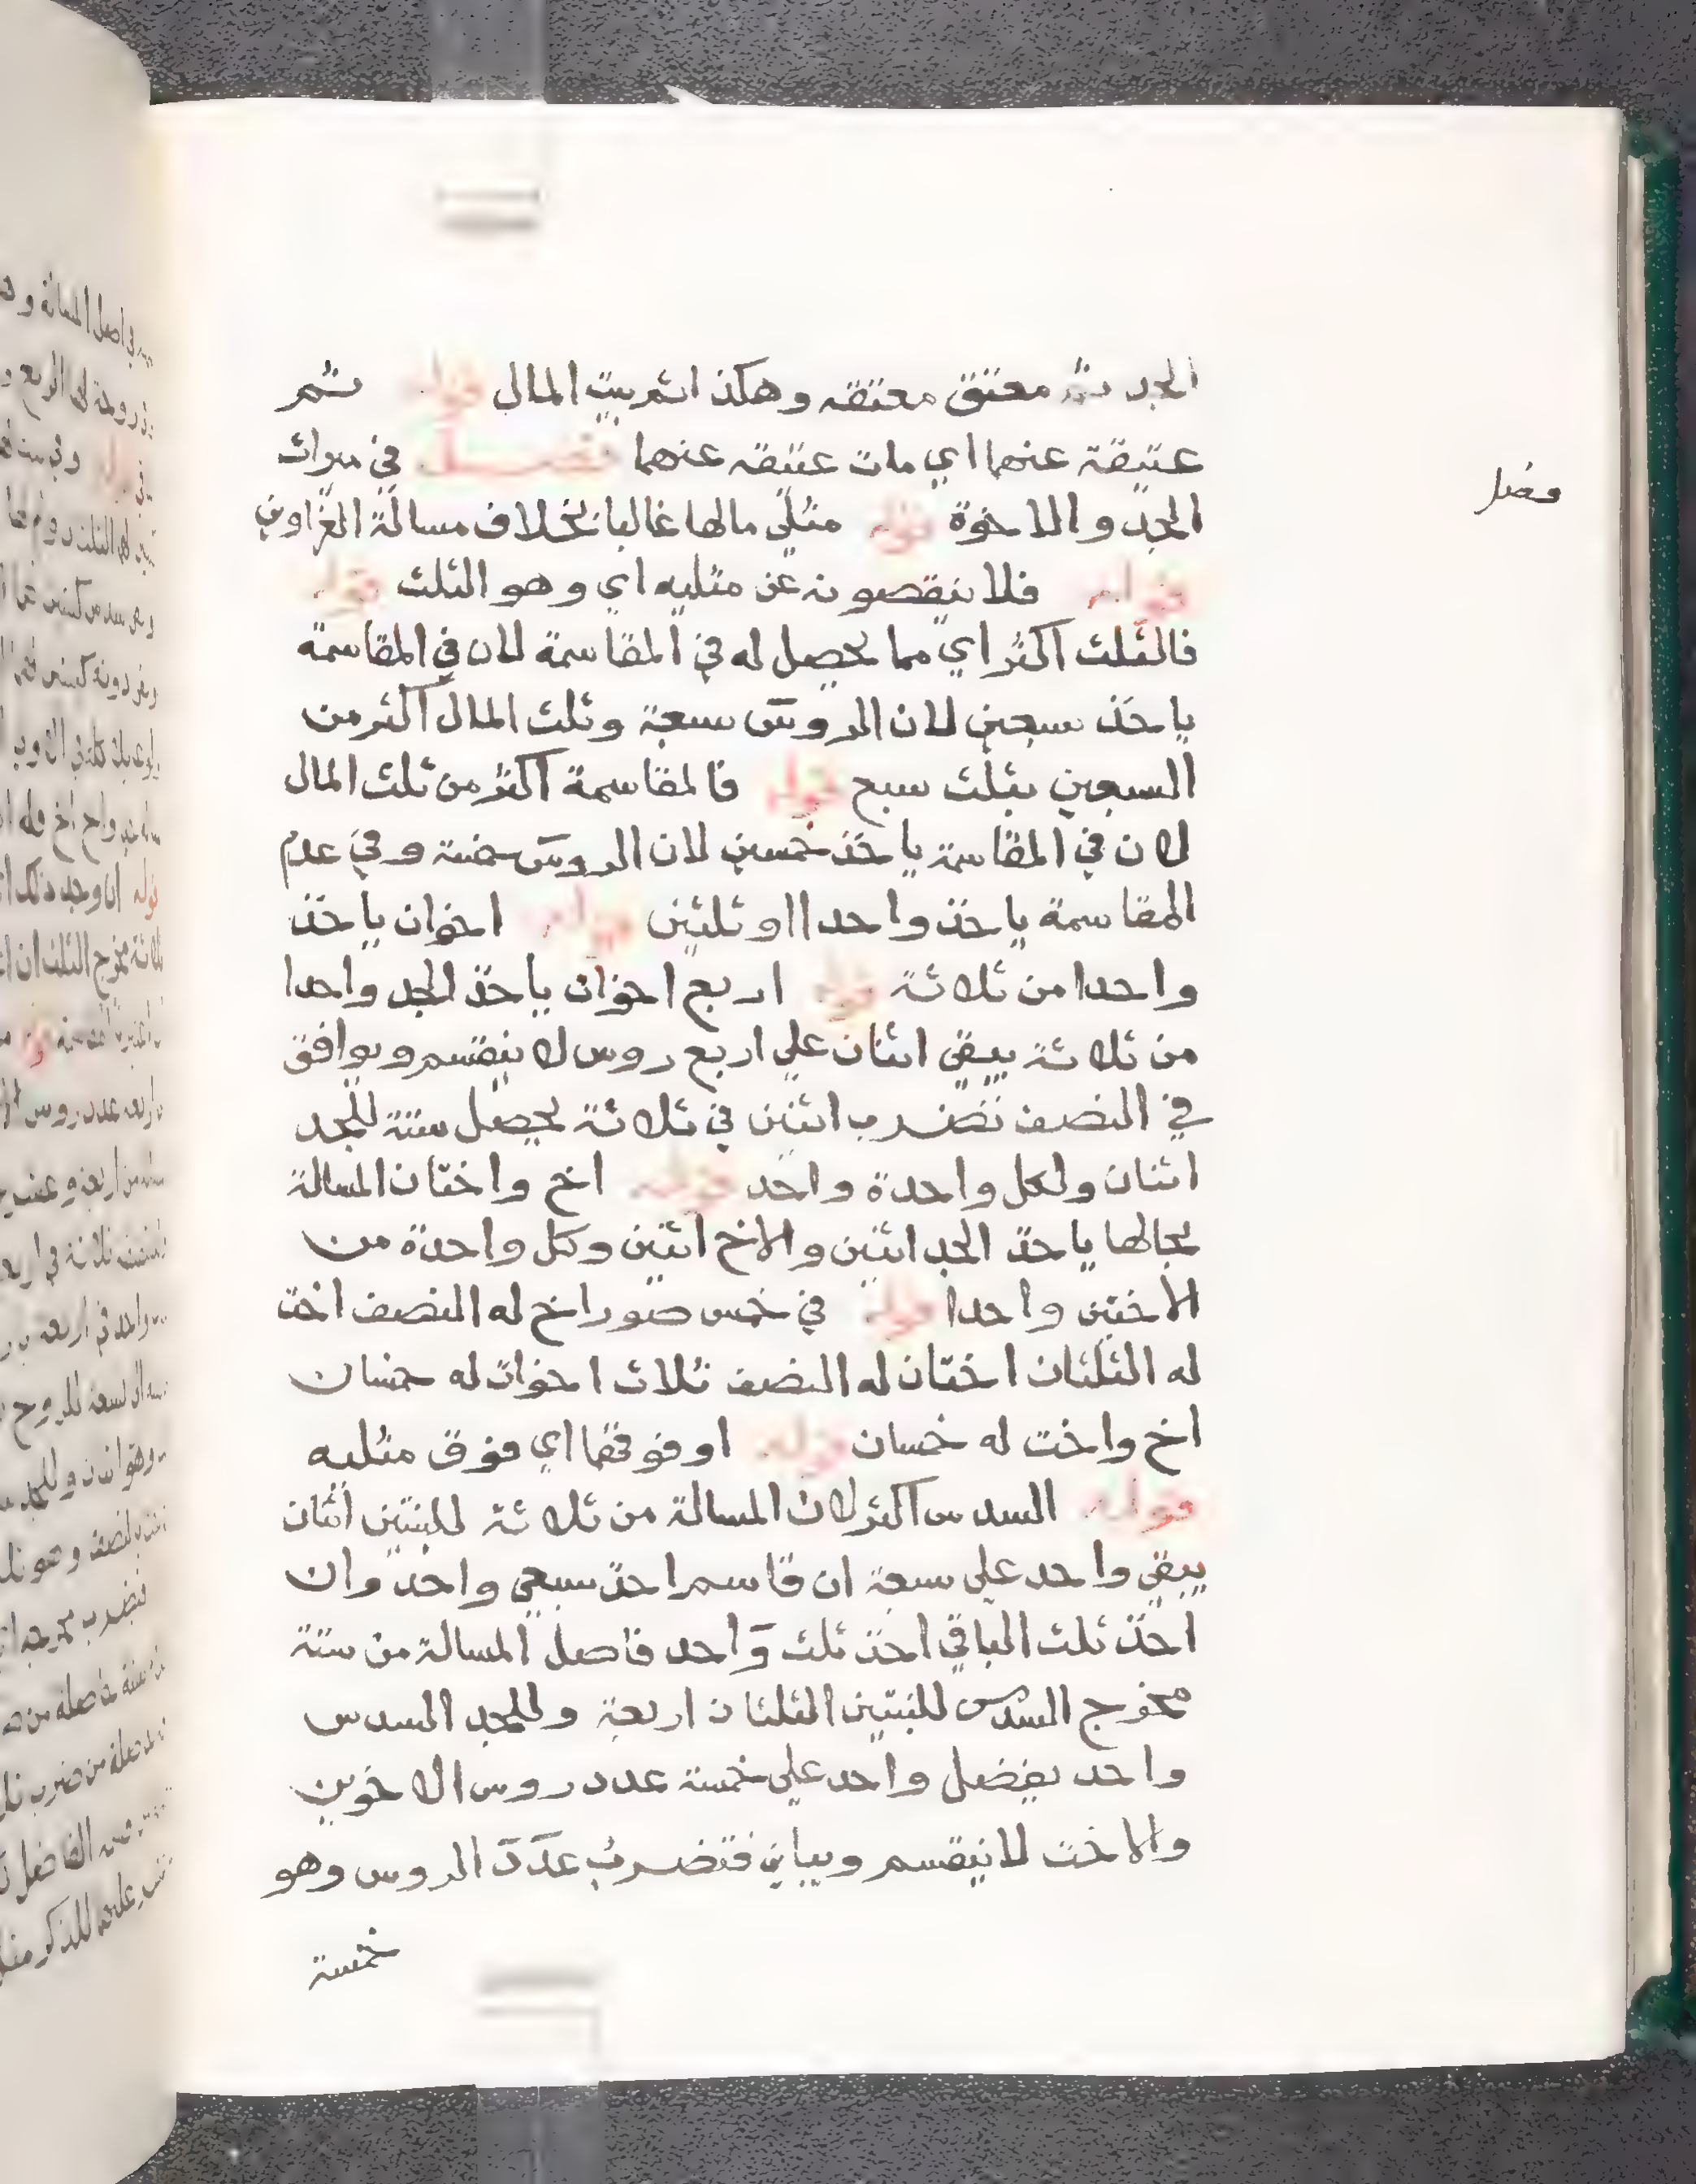 الجد ثم معتق معتقه وهكذا ثم بيت المال قوله ثم
عتيقة عنهما اي مات عتيقه عنهما فصل في ميراث
فصل
الجد والاخوة قوله مثلي مالها غالبا بخلاف مسالة الغراوين
قوله فلا ينقصونه عن مثليه اي وهو الثلث قوله
فالثلث اكثر اي مما يحصل له في المقاسمة لان في المقاسمة
ياخذ سبعين لان الروس سبعة وثلث المال اكثر من
السبعين بثلث سبع قوله فالمقاسمة اكثر من ثلث المال
لان في المقاسمة ياخذ خمسين لان الروس خمسة وفي عدم
المقاسمة ياخذ واحدا او ثلثين قوله اخوان ياخذ
واحدا من ثلاثة قوله اربع اخوات ياخذ الجد واحدا
من ثلاثة يبقي اثنان علي اربع روس لا ينقسم ويوافق
في النصف تضرب اثنين في ثلاثة يحصل ستة للجد
اثنان ولكل واحدة واحد قوله اخ واختان المسالة
بحالها ياخذ الجد اثنين والاخ اثنين وكل واحدة من
الاختين واحدا قوله في خمس صور اخ له النصف اخت
له الثلثان اختان له النصف ثلاث اخوات له خمسان
اخ واخت له خمسان قوله او فوقهما اي فوق مثليه
قوله السدس اكثر لان المسالة من ثلاثة للبنتين اثنان
يبقي واحد علي سبعة ان قاسم اخذ سبعي واحد وان
اخذ ثلث الباقي اخذ ثلث واحد فاصل المسالة من ستة
مخرج السدس للبنتين الثلثان اربعة وللجد السدس
واحد يفضل واحد علي خمسة عدد روس الاخوين
والاخت لا ينقسم ويباين فتضرب عدد الروس وهو
خمسة